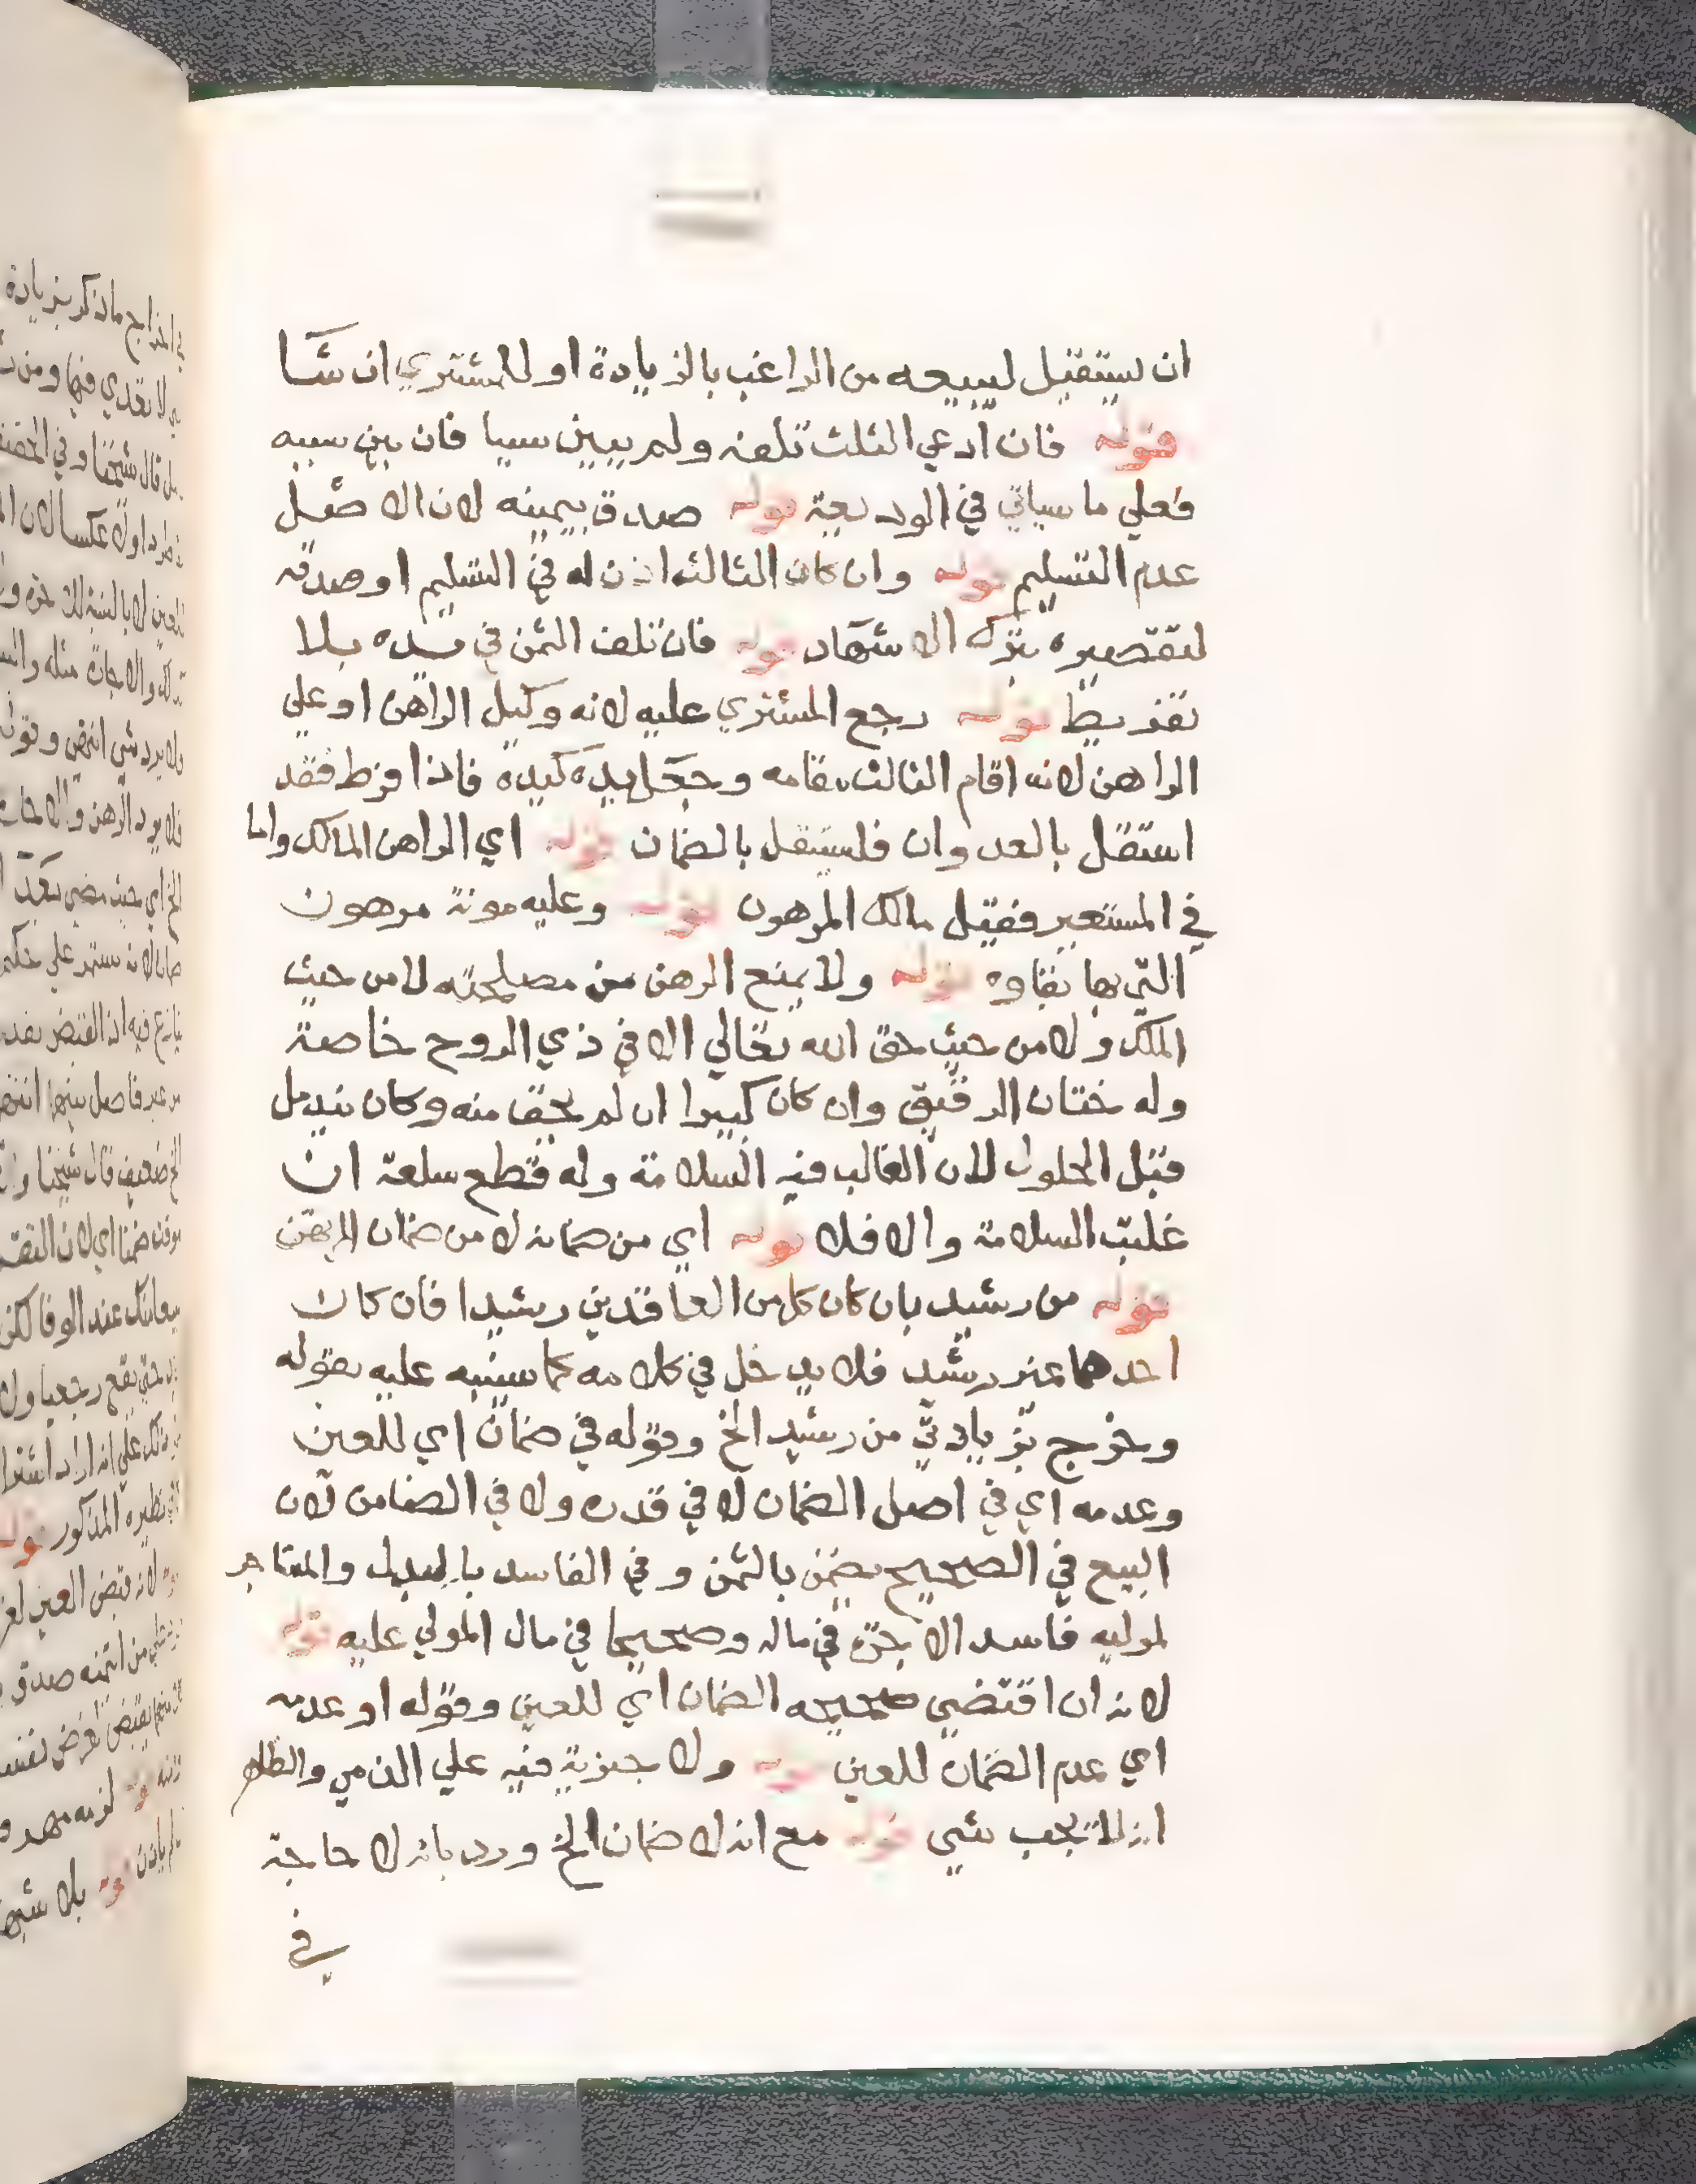 ان يستقيل ليبيعه من الراغب بالزيادة او للمشتري ان شا
قوله فان ادعي الثلث تلفه ولم يبين سببا فان بين سببه
فعلي ما سياتي في الوديعة قوله صدق بيمينه لان الاصل
عدم التسليم قوله وان كان الثالث اذن له في التسليم او صدقه
لتقصيره بترك الاشهاد قوله فان تلف الثمن في يده بلا
تفريط قوله رجع المشتري عليه لانه وكيل الراهن او علي
الراهن لانه اقام الثالث مقامه وجعل يده كيده فاذا فرط فقد
استقل بالعدوان فليستقل بالضمان قوله اي الراهن المالك واما
في المستعير فقيل مالك المرهون قوله وعليه مونة مرهون
التي بها بقاوه قوله ولا يمنع الرهن من مصلحته لا من حيث
الملك ولا من حيث حق الله تعالي الا في ذي الروح خاصة
وله ختان الرقيق وان كان كبيرا ان لم يخف منه وكان يندمل
قبل الحلول لان الغالب فيه السلامة وله قطع سلعة ان
غلبت السلامة والا فلا قوله اي من ضمانه لا من ضمان المرتهن
قوله من رشيد بان كان كل من العاقدين رشيدا فان كان
احدهما غير رشيد فلا يدخل في كلامه كما سينبه عليه بقوله
وخرج بزيادتي من رشيد الخ وقوله في ضمان اي للعين
وعدمه اي في اصل الضمان لا في قدره ولا في الضامن لان
البيع في الصحيح يضمن بالثمن وفي الفاسد بالبدل والمتاجر
لموليه فاسد الاجرة في ماله وصحيحا في مال المولي عليه قوله
لانه ان اقتضي صحيحه الضمان اي للعين وقوله او عدمه
اي عدم الضمان للعين قوله ولا جزية فيه علي الذمي والظاهر
انه لا يجب شي قوله مع انه لا ضمان الخ ورد بانه لا حاجة
في